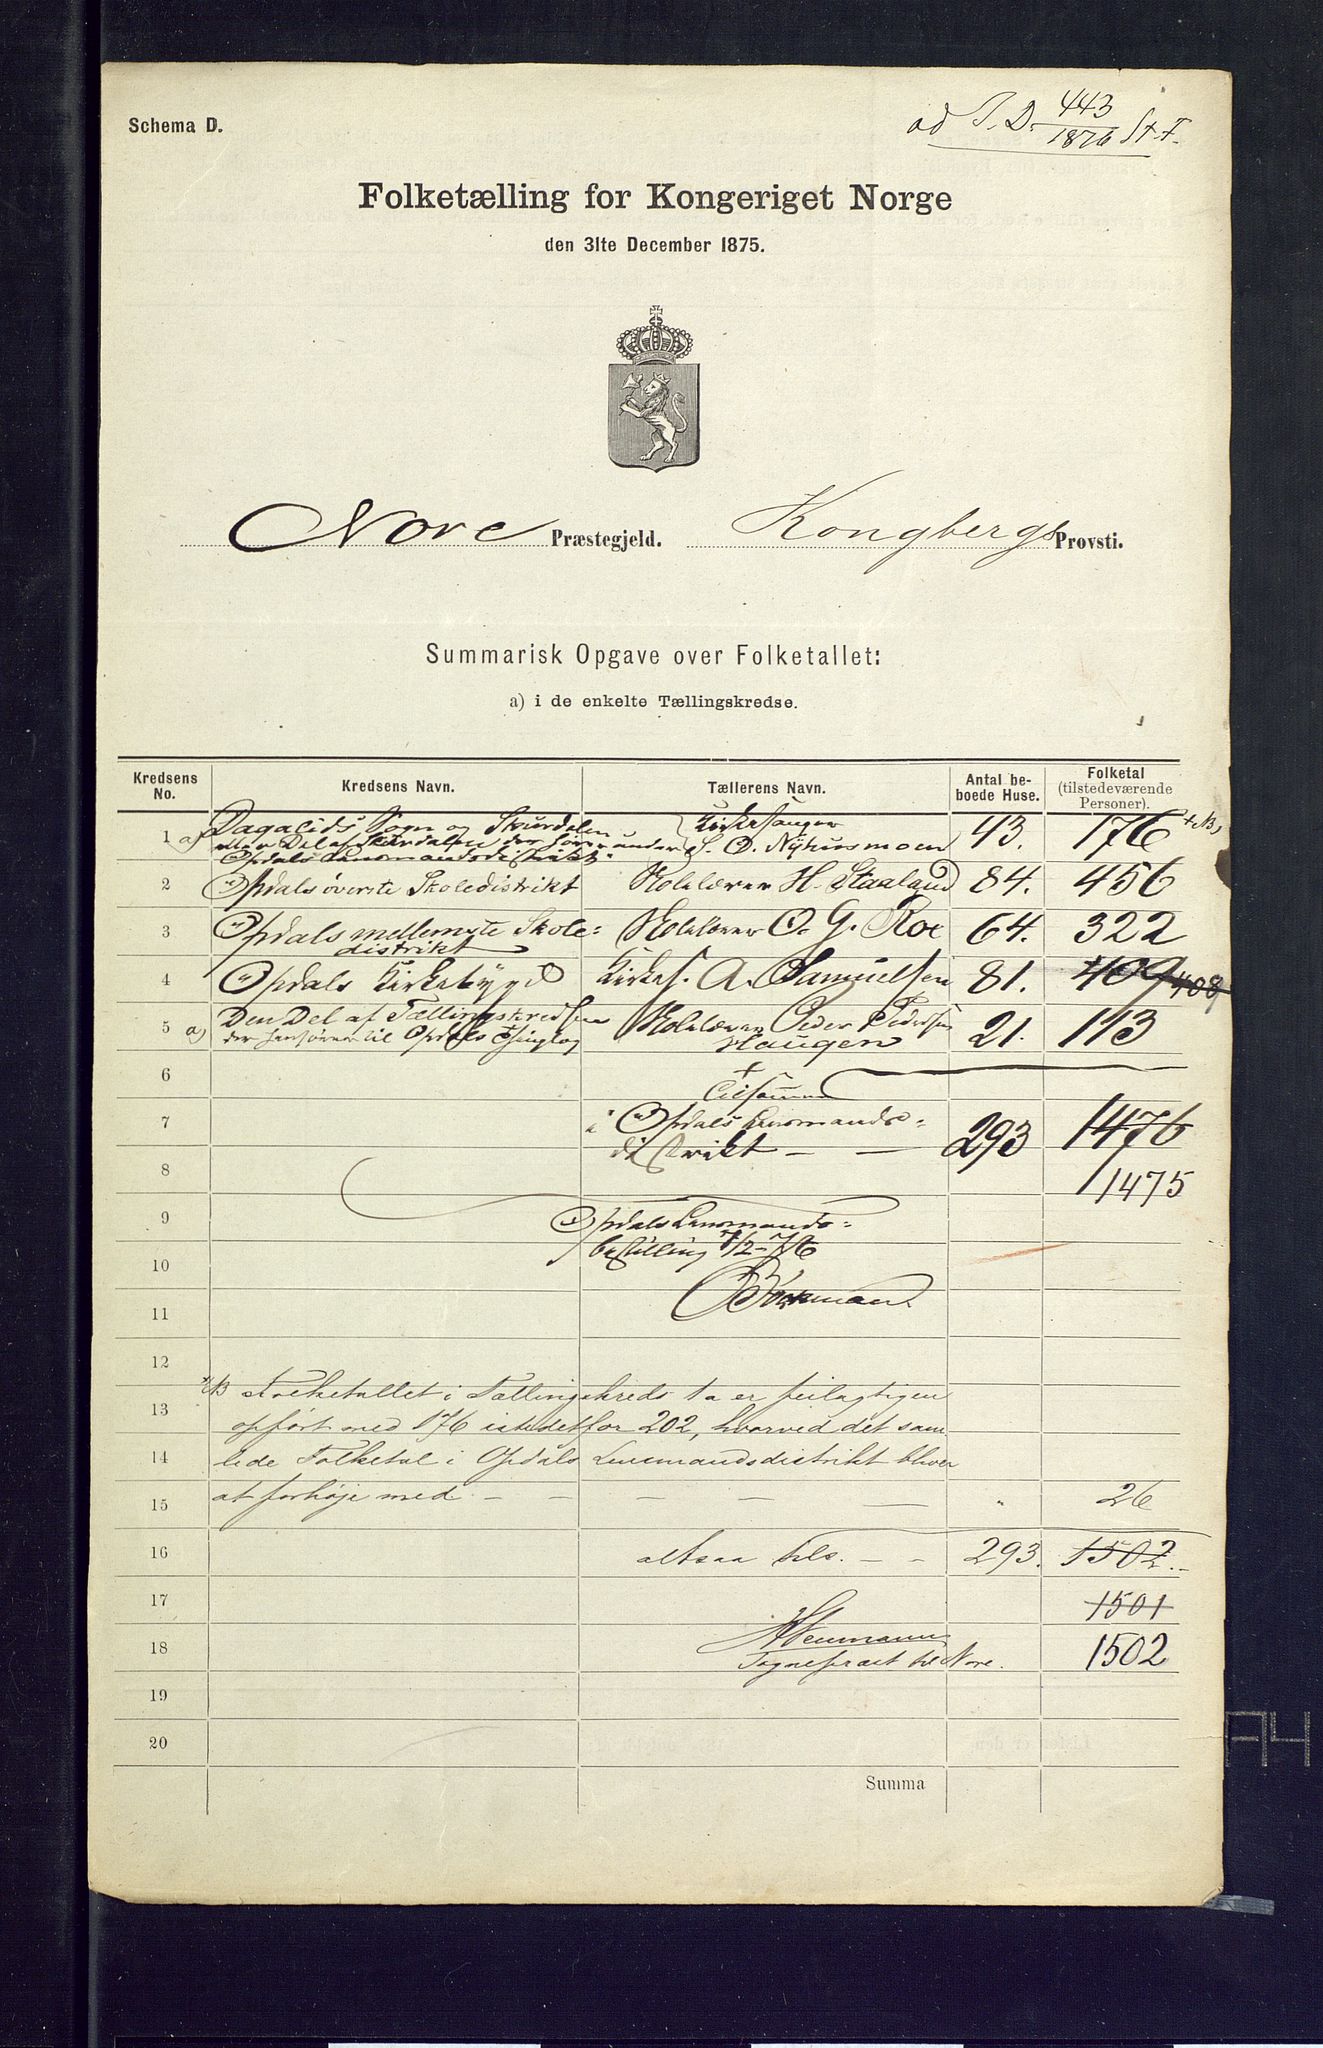 Schema D.
ad J. D. 443/1876 St. F.
Folketælling for Kongeriget Norge
den 31te December 1875.
Nore Præstegjeld. Kongbergs Provsti.
Summarisk Opgave over Folketallet:
a) i de enkelte Tællingskredse.
Kredsens No. Kredsens Navn. Tællerens Navn. Antal beboede Huse. Folketal (tilstedeværende Personer).
1 a) Dagalids Sogn og Skurdalen Kirkesanger 43. 176 + NB)
Del af Skurdalen der under S. O. Nyhusmoen
Opdals Lensmandsdistrikt.
2 Opdals överste Skoledistrikt Skolelærer H. Staaland 84. 456
3 Opdals mellemste Skole= Skolelærer O. G. Roe 64. 322
distrikt
4 Opdals Kirkebygd Kirkes. A. Samuelsen 81. 409 408
5 a) Den Del af Tællingskredsen Skolelærer Peder Pedersen 21. 113
der henhörer til Opdals Thinglag Haugen
6 Tilsammen
7 i Opdals Lensmands=
distrikt — — 293 1476
8 1475
9 Opdals Lensmands=
bestilling 7/2-76
10
11
12
13 NB Folketallet i Tællingskreds 1a er feilagtigen
opført med 176 istedetfor 202, hvorved det sam
14 lede Folketal i Opdals Lensmandsdistrikt bliver
15 at forhøje med — — — — — " 26
16 altsaa tils. — — 293. 1502.
17 1501
18 Sognepræst til Nore. 1502
19
20
Summa